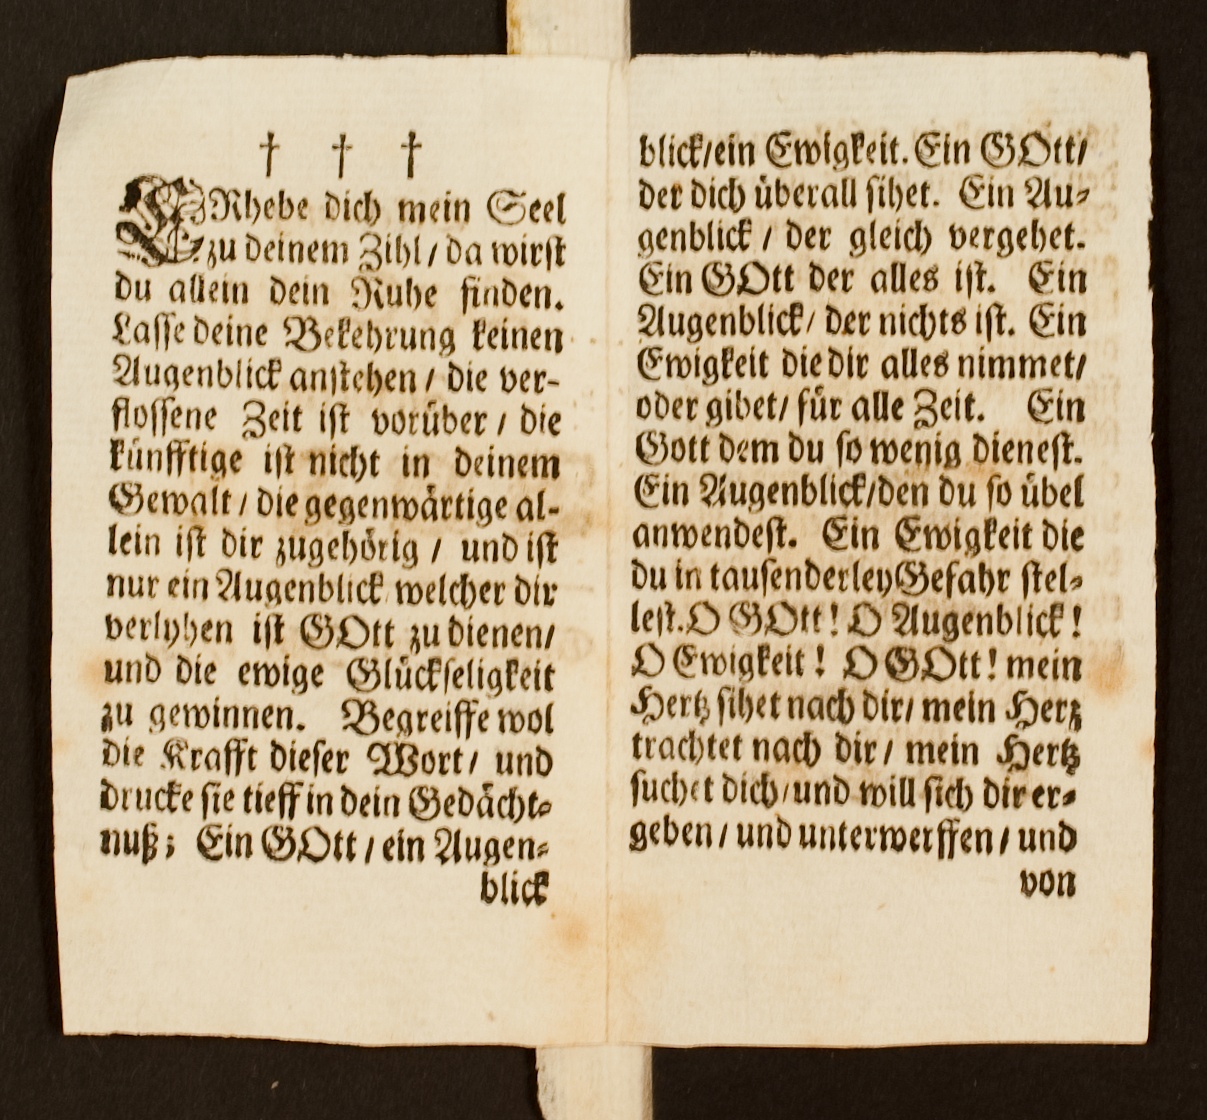 † † †
ERhebe dich mein Seel
zu deinem Zihl / da wirst
du allein dein Ruhe finden.
Lasse deine Bekehrung keinen
Augenblick anstehen / die ver-
flossene Zeit ist vorüber / die
künfftige ist nicht in deinem
Gewalt / die gegenwärtige al-
lein ist dir zugehörig / und ist
nur ein Augenblick welcher dir
verlyhen ist GOtt zu dienen /
und die ewige Glückseligkeit
zu gewinnen. Begreiffe wol
die Krafft dieser Wort / und
drucke sie tieff in dein Gedächt-
nuß; Ein GOtt / ein Augen-
blick
blick / ein Ewigkeit. Ein GOtt /
der dich überall sihet. Ein Au-
genblick / der gleich vergehet.
Ein GOtt der alles ist. Ein
Augenblick / der nichts ist. Ein
Ewigkeit die dir alles nimmet /
oder gibet / für alle Zeit. Ein
Gott dem du so wenig dienest.
Ein Augenblick / den du so übel
anwendest. Ein Ewigkeit die
du in tausenderley Gefahr stel-
lest. O GOtt! O Augenblick!
O Ewigkeit! O GOtt! mein
Hertz sihet nach dir / mein Herz
trachtet nach dir / mein Hertz
suchet dich / und will sich dir er-
geben / und unterwerffen / und
von